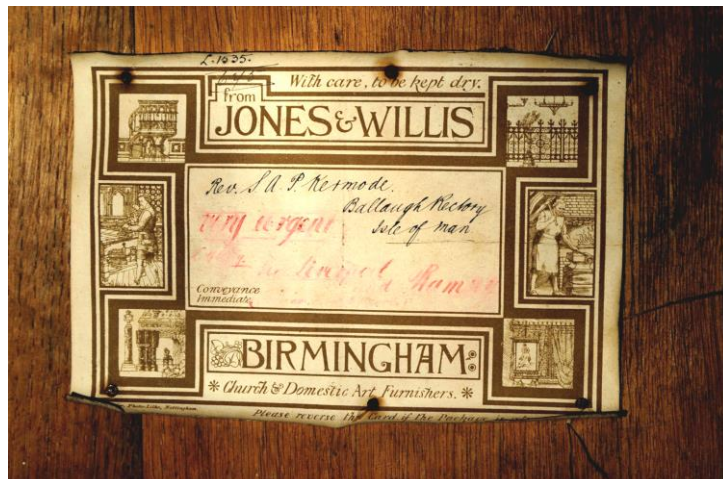 L. 1035.
With care, to be kept dry.
from
JONES & WILLIS
Rev. S A P Kermode.
Ballaugh Rectory
Isle of Man
very urgent
Liverpool & Ramsey
Conveyance
Immediate
BIRMINGHAM:
* Church & Domestic Art Furnishers. *
Please reverse this Card if the Package is